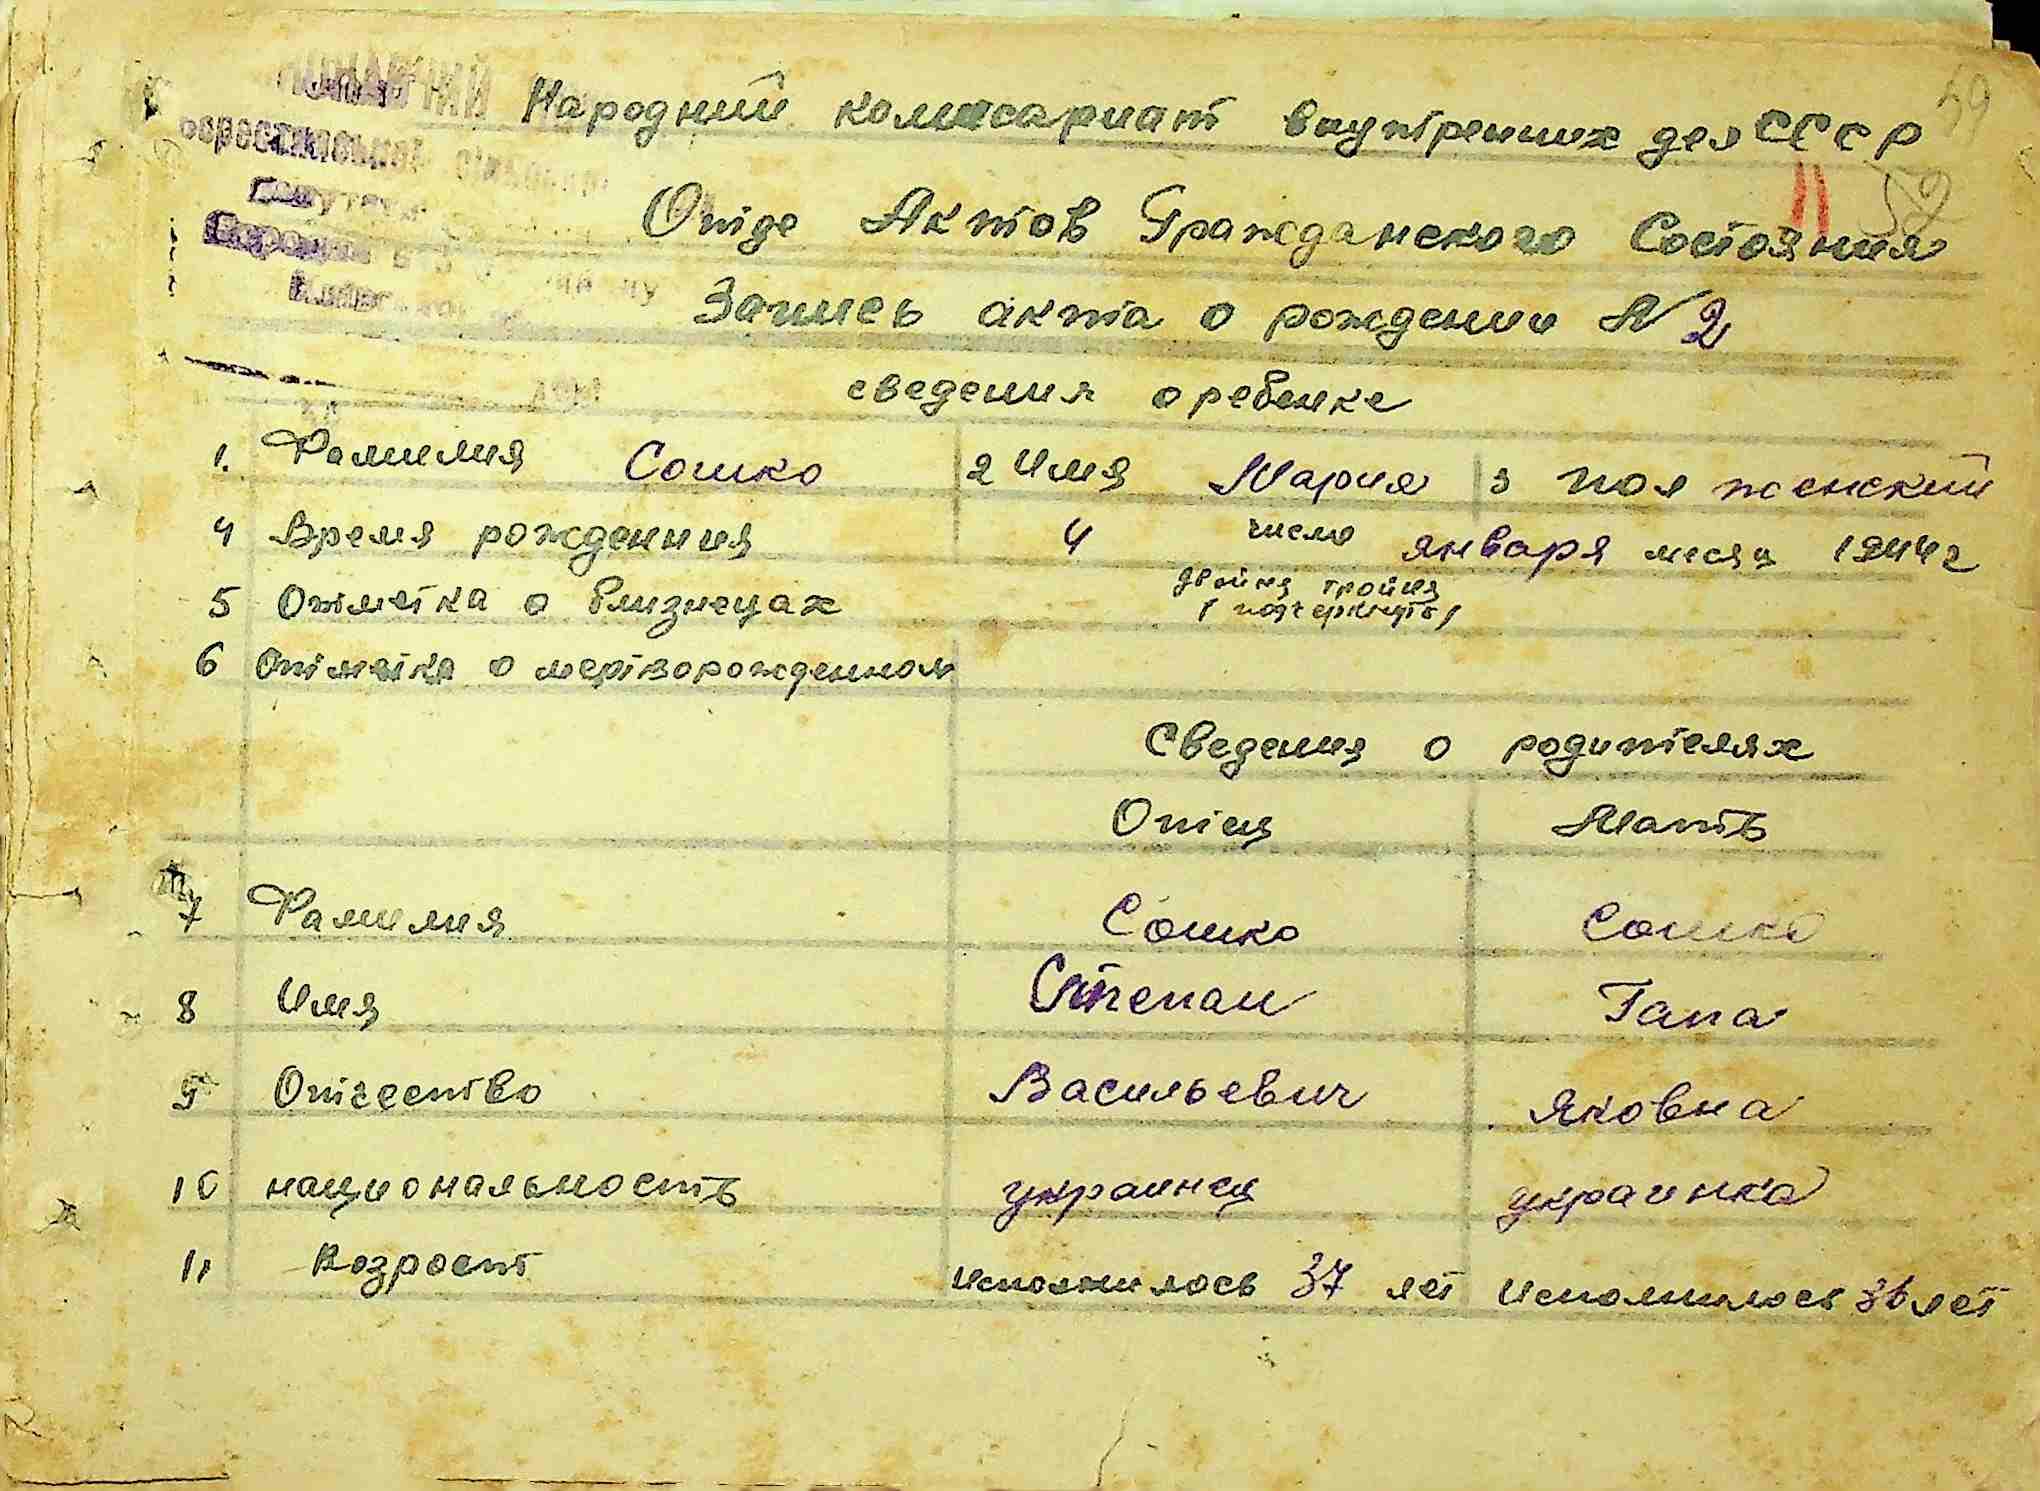 59
Народний комисариат внутренних дел СССР
52
Отде Актов Гражданского Состояния
Запись акта о рождении N 2
сведения о ребенке
1. Фамилия Сошко 2 Имя Мария 3 пол женский
4 Время рожденния 4 число января месяц 1944 г
5 Отметка о близнецах двойня тройня
(подчеркнуть)
6 Отметка о мертворожденном
Сведения о родителях
Отец Мать
7 Фамилия Сошко Сошко
8 Имя Степан Гапа
9 Отчество Васильевич Яковна
10 национальность украинец украинка
11 Возрост Исполнилось 37 лет Исполнилось 36 лет